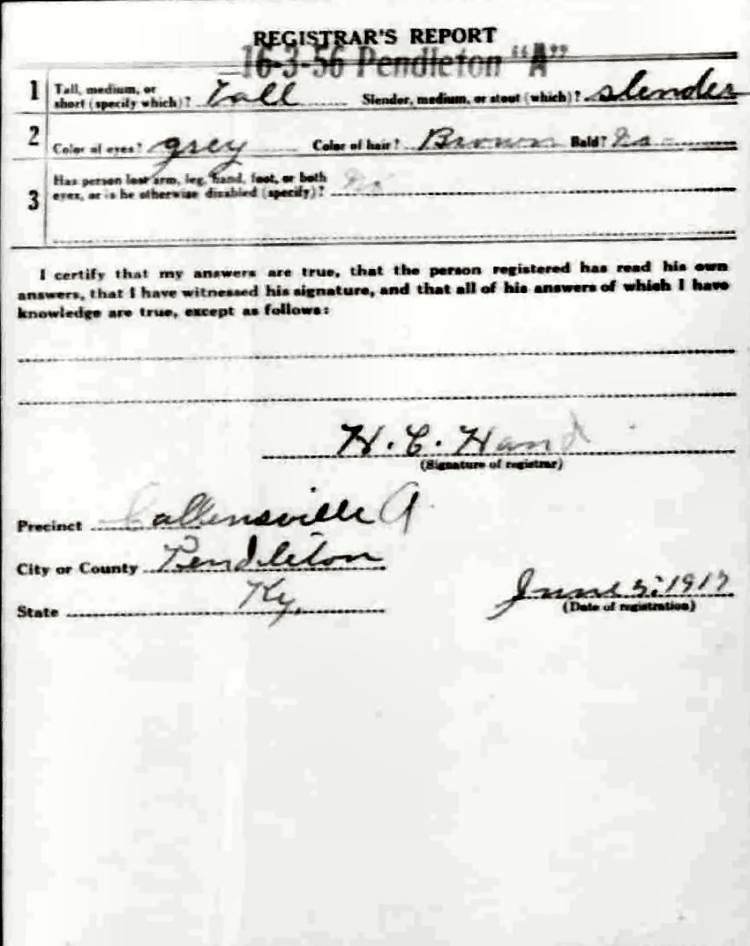 REGISTRAR'S REPORT
16-3-56 Pendleton "A"
1 Tall, medium, or short (specify which)? Tall Slender, medium, or stout (which)? slender
2 Color of eyes? grey Color of hair? Brown Bald? No
3 Has person lost arm, leg, hand, foot, or both
eyes, or is he otherwise disabled (specify)? No
I certify that my answers are true, that the person registered has read his own
answers, that I have witnessed his signature, and that all of his answers of which I have
knowledge are true, except as follows:
H. C. Hand
(Signature of registrar)
Precinct Callensville A
City or County Pendleton
State Ky.
June 5, 1917
(Date of registration)